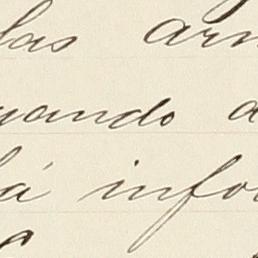 las arm
uando a
lá infor